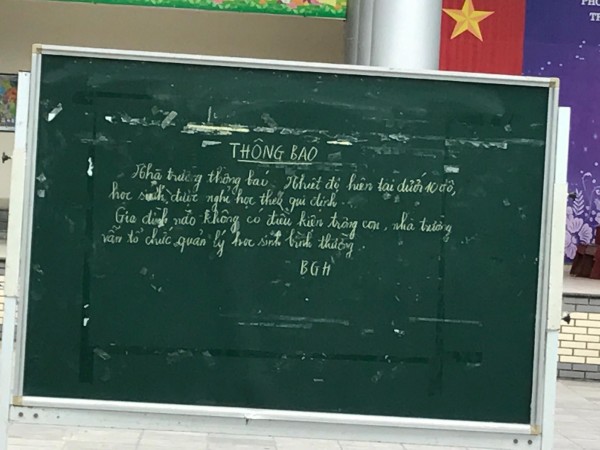 PHÒ
TR
THÔNG BÁO
Nhà trường thông báo. Nhiệt độ hiện tại dưới 10 độ,
học sinh được nghỉ học theo qui định.
Gia đình nào không có điều kiện trông con, nhà trường
vẫn tổ chức quản lý học sinh bình thường.
BGH